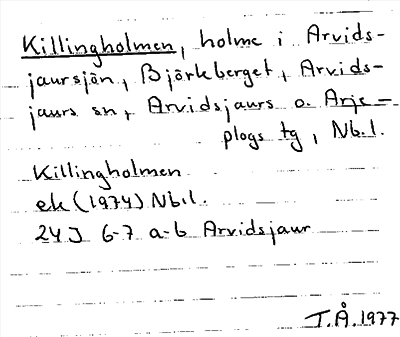 Killingholmen, holme i Arvids-
jaursjön, Björkberget, Arvids-
jaurs sn, Arvidsjaurs o. Arje-
plogs tg, Nb.l.
Killingholmen
ek (1974) Nb.l.
24J 6-7 a-b Arvidsjaur
T.Å. 1977